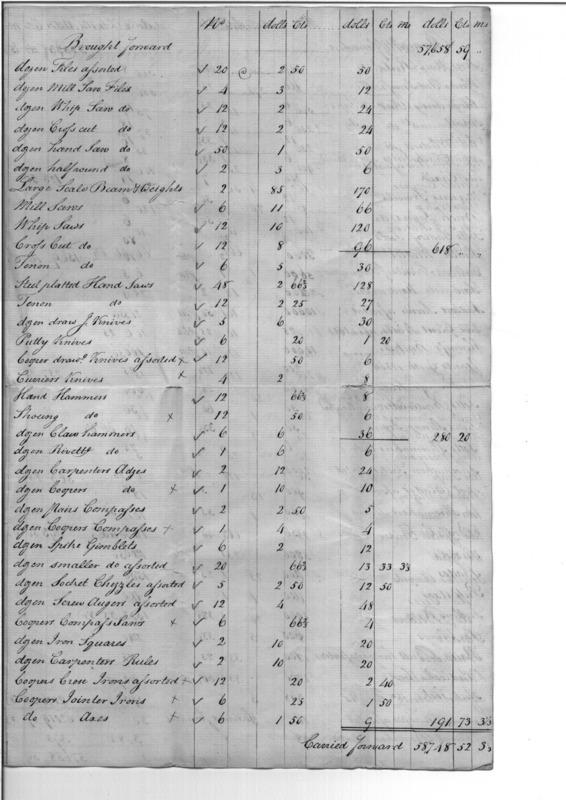 No dolls Cts dolls Cts Ms dolls Cts Ms
Brought forward 57,658 59 "
dozen Files assorted ✓ 20 @ 2 50 50
dozen Mill Saw Files ✓ 4 3 12
dozen Whip Saw do ✓ 12 2 24
dozen Cross cut do ✓ 12 2 24
dozen hand Saw do ✓ 50 1 50
dozen halfround do ✓ 2 3 6
Large Scale Beam & Weights 2 85 170
Mill Saws ✓ 6 11 66
Whip Saws ✓ 12 10 120
Cross Cut do ✓ 12 8 96 618 " "
Tenon do ✓ 6 5 30
Steel platted Hand Saws ✓ 48 2 66⅔ 128
Tenon do ✓ 12 2 25 27
dozen draw g. Knives ✓ 5 6 30
Putty Knives ✓ 6 20 1 20
Cooper drawg Knives assorted x ✓ 12 50 6
Curriers Knives x 4 2 8
Hand Hammers ✓ 12 66⅔ 8
Shoeing do x ✓ 12 50 6
dozen Claw hammers ✓ 6 6 36 280 20
dozen Rivett do ✓ 1 6 6
dozen Carpenters Adzes ✓ 2 12 24
dozen Coopers do x ✓ 1 10 10
dozen Pairs Compasses ✓ 2 2 50 5
dozen Coopers Compasses + ✓ 1 4 4
dozen Spike Gimblets ✓ 6 2 12
dozen smaller do assorted ✓ 20 66⅔ 13 33 3⅓
dozen Socket Chyzles assorted ✓ 5 2 50 12 50
dozen Screw Augers assorted ✓ 12 4 48
Coopers Compass Saws x ✓ 6 66⅔ 4
dozen Iron Squares ✓ 2 10 20
dozen Carpenters Rules ✓ 2 10 20
Coopers Croze Irons assorted + ✓ 12 20 2 40
Coopers Jointer Irons + ✓ 6 25 1 50
do Axes + ✓ 6 1 50 9 191 73 3⅓
Carried forward 58748 52 3⅓